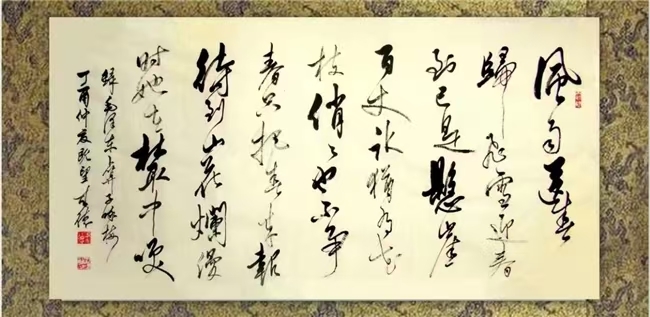 風雨送春
歸飛雪迎春
到已是懸崖
百丈冰猶有花
枝俏々也不争
春只把春來報
待到山花爛漫
時她在叢中咲
錄毛澤東卜算子咏梅
丁酉仲夏